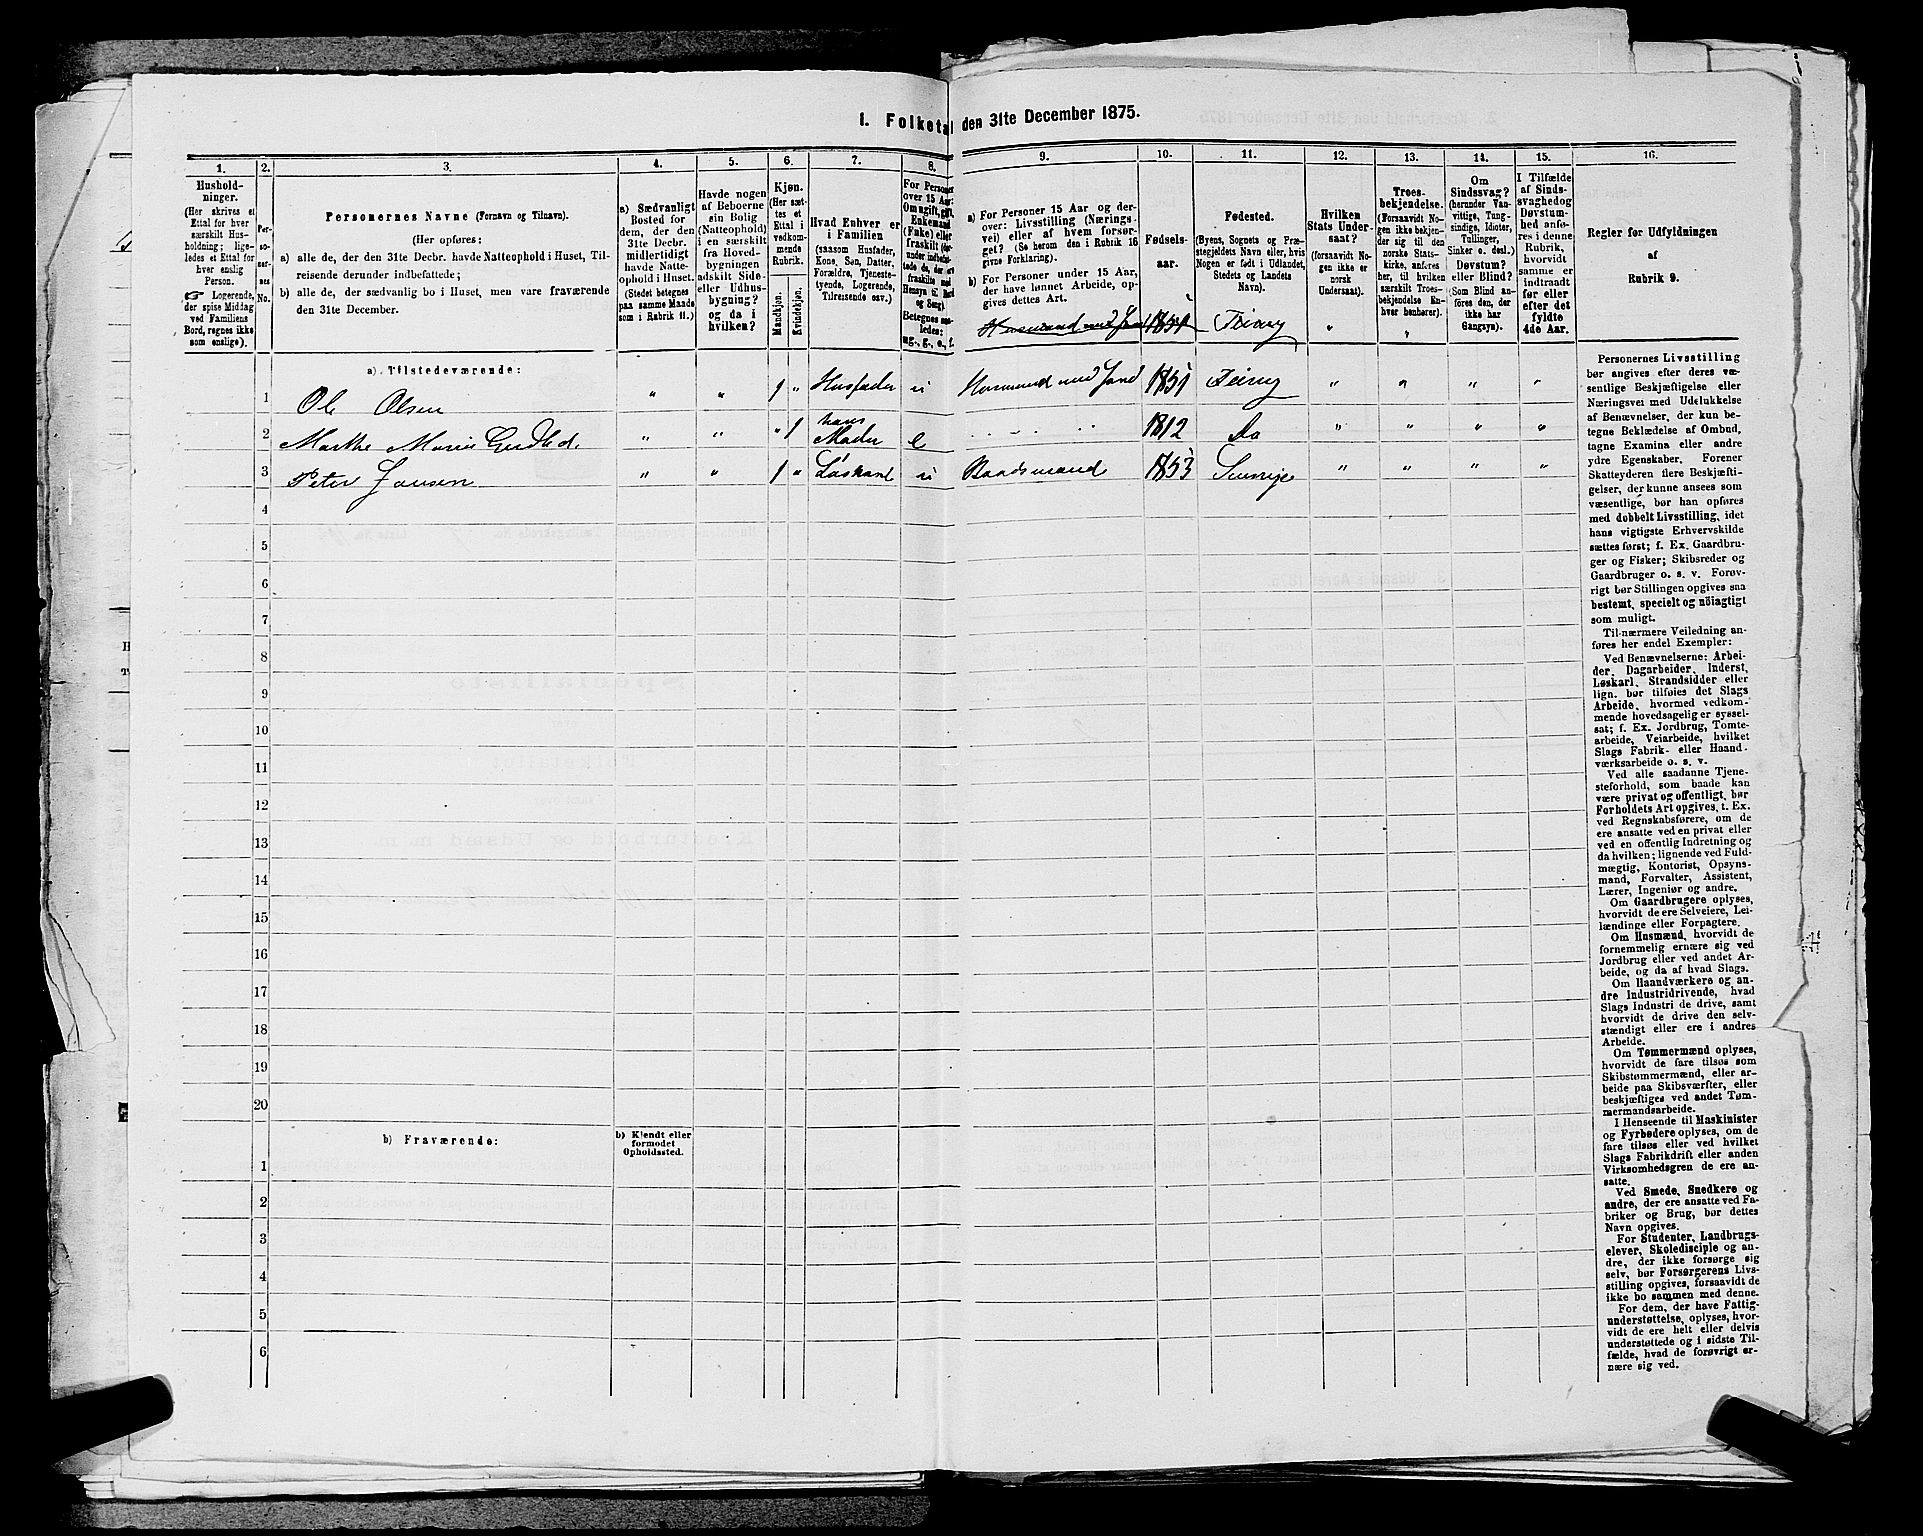 1. Folketal den 31te December 1875.
1.
2.
3.
4.
5.
6.
7.
8.
9.
10.
11.
12.
13.
14.
15.
16.
Hushold-
ninger.
(Her skrives et
Ettal for hver
særskilt Hus-
holdning; lige-
ledes et Ettal for
hver enslig
Person.
☞ Logerende,
der spise Middag
ved Familiens
Bord, regnes ikke
som enslige).
Per-
so-
ner-
nes
No.
Personernes Navne (Fornavn og Tilnavn).
(Her opføres:
a) alle de, der den 31te Decbr. havde Natteophold i Huset, Til-
reisende derunder indbefattede;
b) alle de, der sædvanlig bo i Huset, men vare fraværende
den 31te December.
a) Sædvanligt
Bosted for
dem, der den
31te Decbr.
midlertidigt
havde Natte-
ophold i Huset.
(Stedet betegnes
paa samme Maade
som i Rubrik 11.)
Havde nogen
af Beboerne
sin Bolig
(Natteophold)
i en særskilt
fra Hoved-
bygningen
adskilt Side-
eller Udhus-
bygning?
og da i
hvilken?
Kjøn.
(Her sæt-
tes et
Ettal i
vedkom-
mende
Rubrik.
Mandkjøn.
Kvindekjøn.
Hvad Enhver er
i Familien
(saasom Husfader,
Kone, Søn, Datter,
Forældre, Tjeneste-
tyende, Logerende,
Tilreisende osv.)
For Personer
over 15 Aar:
Om ugift, gift,
Enkemand
(Enke) eller
fraskilt
Betegnes saa-
ledes:
ug., g., e., f.
a) For Personer 15 Aar og der-
over: Livsstilling (Nærings-
vei) eller af hvem forsør-
get? (Se herom den i Rubrik 16
givne Forklaring).
b) For Personer under 15 Aar,
der have lønnet Arbeide, op-
gives dettes Art.
Fødsels-
aar.
Fødested.
(Byens, Sognets og Præ-
stegjeldets Navn eller, hvis
Nogen er født i Udlandet,
Stedets og Landets
Navn).
Hvilken
Stats Under-
saat?
(forsaavidt No-
gen ikke er
norsk
Undersaat).
Troes-
bekjendelse.
(Forsaavidt No-
gen ikke bekjen-
der sig til den
norske Stats-
kirke, anføres
her, til hvilken
særskilt Troes-
bekjendelse En-
hver henhører).
Om
Sindssvag?
(herunder Van-
vittige, Tung-
sindige, Idioter,
Tullinger,
Sinker o. desl.)
Døvstum?
eller Blind?
(Som Blind an-
føres den, der
ikke har
Gangsyn).
I Tilfælde
af Sinds-
svaghed og
Døvstum-
hed anfø-
res i denne
Rubrik,
hvorvidt
samme er
indtraadt
før eller
efter det
fyldte
4de Aar.
Regler for Udfyldningen
af
Rubrik 9.
Husmand med Jord 1851 "
a) Tilstedeværende:
1 Ole Olsen " " 1 " Husfader u Husmand med Jord 1851 " " " "
2 Marthe Marie " " " 1 hans Moder e " " " 1812 Do " " " "
3 Peter Jansen " " 1 " Løskarl u Baadsmand 1853 Sverrige " " " "
4
5
6
7
8
9
10
11
12
13
14
15
16
17
18
19
20
b) Fraværende:
b) Kjendt eller
formodet
Opholdssted.
1
2
3
4
5
6
Personernes Livsstilling
bør angives efter deres væ-
sentlige Beskjæftigelse eller
Næringsvei med Udelukkelse
af Benævnelser, der kun be-
tegne Beklædelse af Ombud,
tagne Examina eller andre
ydre Egenskaber. Forener
Skatteyderen flere Beskjæfti-
gelser, der kunne ansees som
væsentlige, bør han opføres
med dobbelt Livsstilling, idet
hans vigtigste Erhvervskilde
sættes først; f. Ex. Gaardbru-
ger og Fisker; Skibsreder og
Gaardbruger o. s. v. Forøv-
rigt bør Stillingen opgives saa
bestemt, specielt og nöiagtigt
som muligt.
Til nærmere Veiledning an-
føres her endel Exempler:
Ved Benævnelserne: Arbei-
der, Dagarbeider, Inderst,
Løskarl, Strandsidder eller
lign. bør tilføies det Slags
Arbeide, hvormed vedkom-
mende hovedsagelig er syssel-
sat; f. Ex. Jordbrug, Tomte-
arbeide, Veiarbeide, hvilket
Slags Fabrik- eller Haand-
værksarbeide o. s. v.
Ved alle saadanne Tjene-
steforhold, som baade kan
være privat og offentligt, bør
Forholdets Art opgives, t. Ex.
ved Regnskabsførere, om de
ere ansatte ved en privat eller
ved en offentlig Indretning og
da hvilken; lignende ved Fuld-
mægtig, Kontorist, Opsyns-
mand, Forvalter, Assistent,
Lærer, Ingeniør og andre.
Om Gaardbrugere oplyses,
hvorvidt de ere Selveiere, Lei-
lændinge eller Forpagtere.
Om Husmænd, hvorvidt de
fornemmelig ernære sig ved
Jordbrug eller ved andet Ar-
beide, og da af hvad Slags.
Om Haandværkere og an-
dre Industridrivende, hvad
Slags Industri de drive, samt
hvorvidt de drive den selv-
stændigt eller ere i andres
Arbeide.
Om Tømmermænd oplyses,
hvorvidt de fare tilsøs som
Skibstømmermænd, eller ar-
beide paa Skibsværfter, eller
beskjæftiges ved andet Tøm-
mermandsarbeide.
I Henseende til Maskinister
og Fyrbødere oplyses, om de
fare tilsøs eller ved hvilket
Slags Fabrikdrift eller anden
Virksomhedsgren de ere an-
satte.
Ved Smede, Snedkere og
andre, der ere ansatte ved Fa-
briker og Brug, bør dettes
Navn opgives.
For Studenter, Landbrugs-
elever, Skoledisciple og an-
dre, der ikke forsørge sig
selv, bør Forsørgerens Livs-
stilling opgives, forsaavidt de
ikke bo sammen med denne.
For dem, der have Fattig-
understøttelse, oplyses, hvor-
vidt de ere helt eller delvis
understøttede og i sidste Til-
fælde, hvad de forøvrigt er-
nære sig ved.